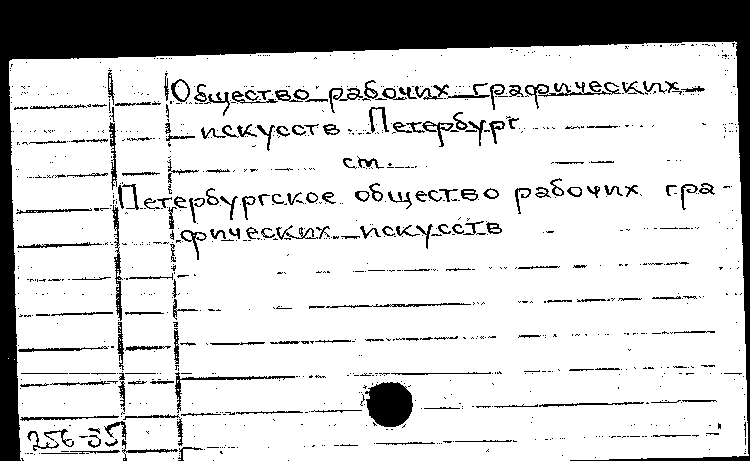 Общество рабочих графических
искусств. Петербург
см.
Петербургское общество рабочих гра-
фических искусств
256-35